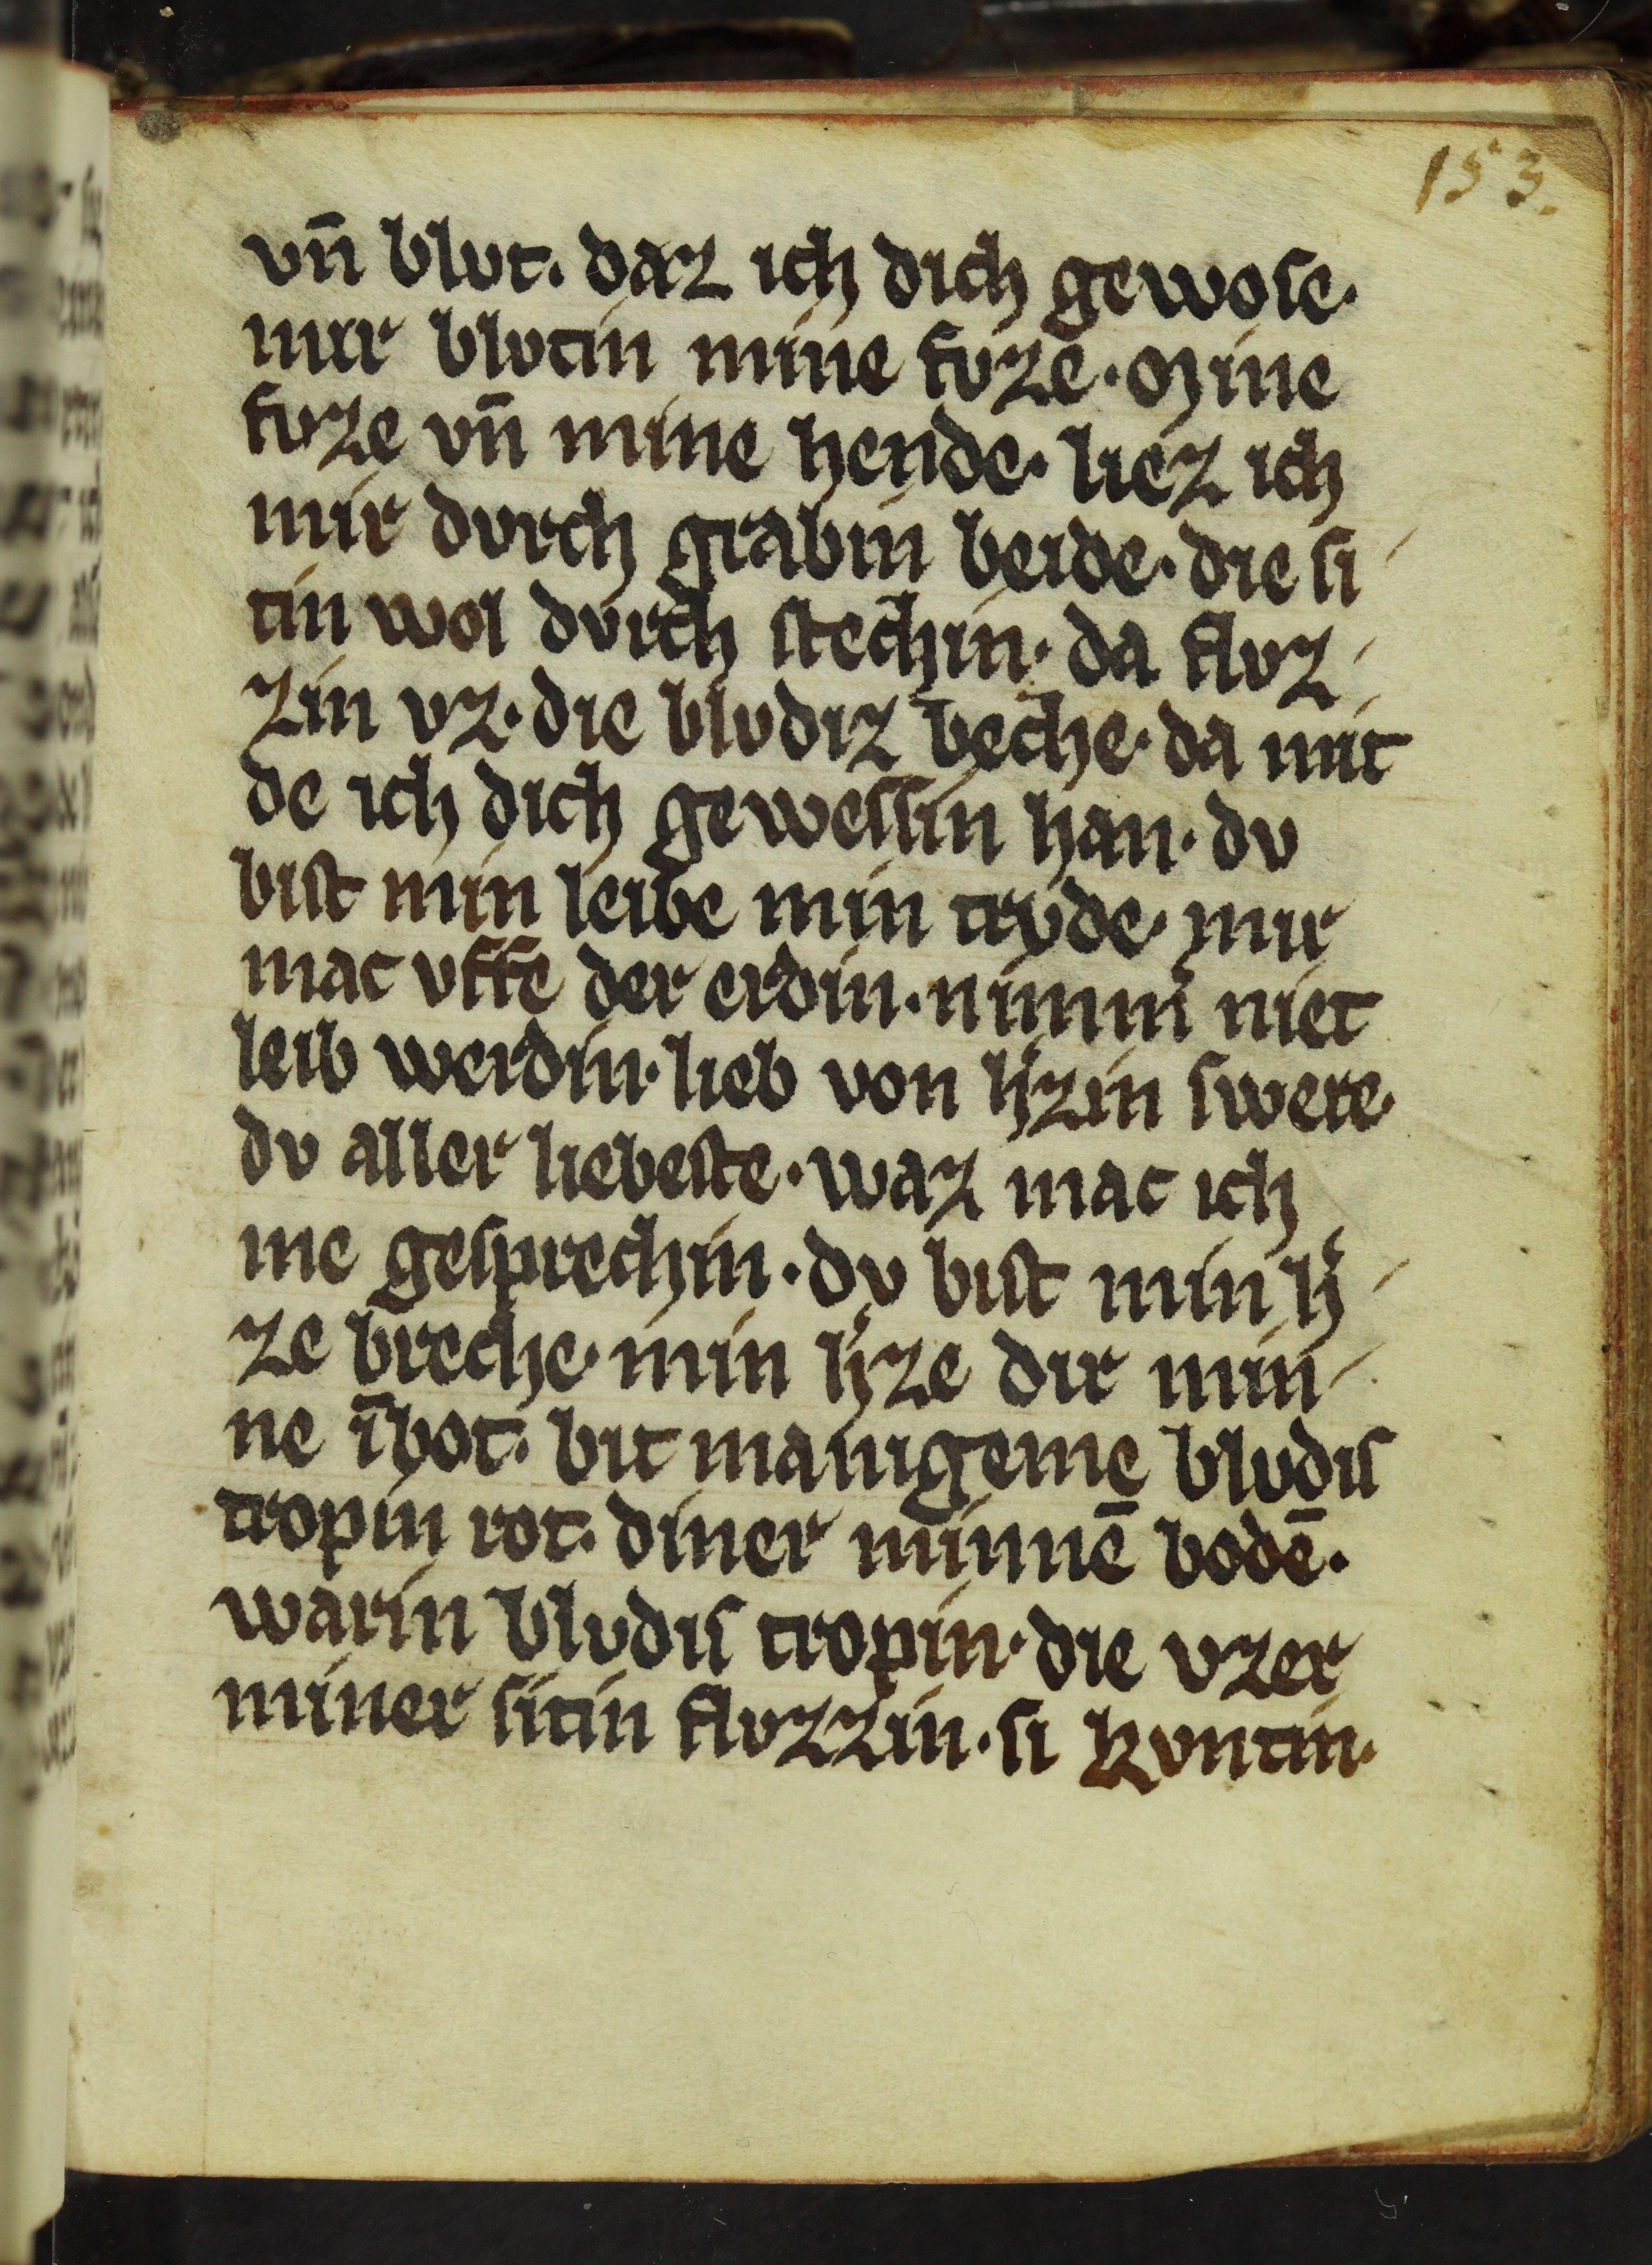 153.
vn̄ blvt. daz ich dich gewose.
mir blvtin mine fvze. Mine
fvze vn̄ mine hende. liez ich
mir dvrch grabin beide. die si-
tin wol dvrch stechin. da flvz-
zin vz. die blvdiz beche. da mit
de ich dich gewessin han. dv
bist min leibe min trvde. mir
mac vffe der erdin. nimm̉ niet
leib werdin. lieb von h̉zin swere.
dv aller liebeste. waz mac ich
me gesprechin. dv bist min h̉-
ze breche. min h̉ze dir min-
ne ībot. bit manigeme blvdis
tropin rot. diner minnē bodē.
warin blvdis tropin. die vzer
miner sitin flvzzin. si kvntin.